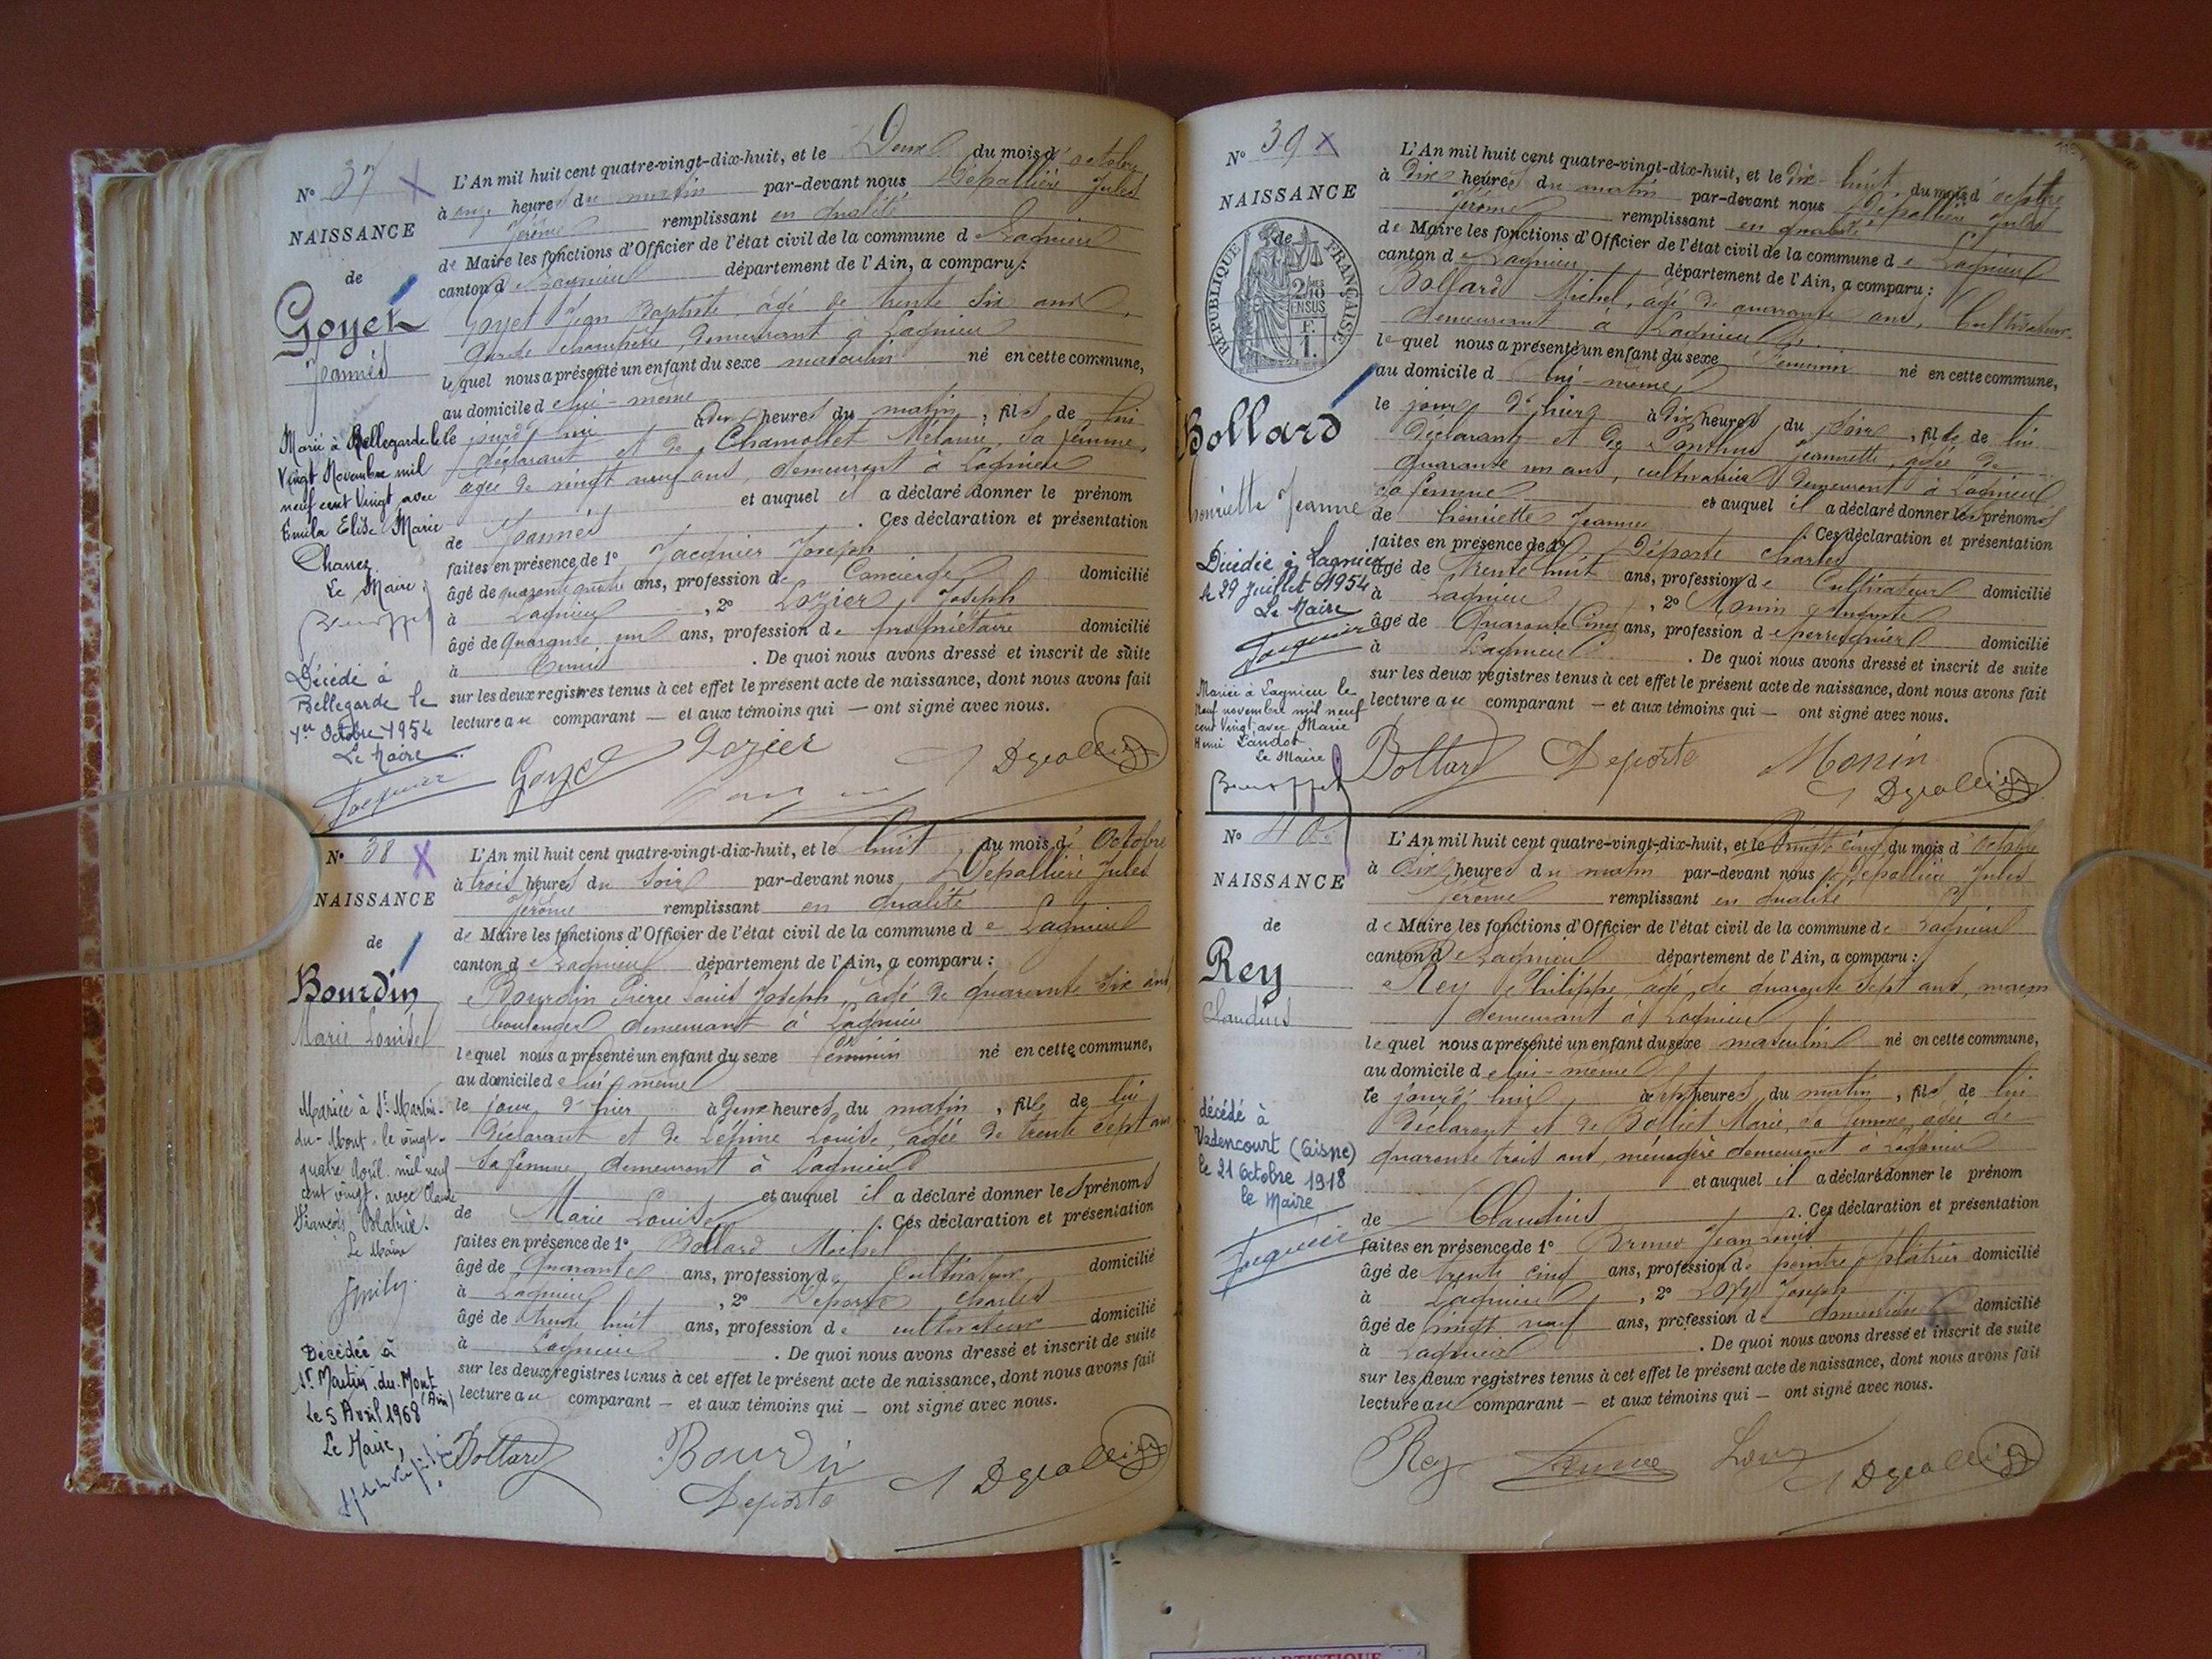 N° 37 X
NAISSANCE
de
Goyet
Joannès
Marié à Bellegarde le
Vingt Novembre mil
neuf cent Vingt avec
Emilia Elise Marie
Charvez
Le Maire
Décédé à
Bellegarde le
1er Octobre 1954
Le Maire
Jacquier
L'An mil huit cent quatre-vingt-dix-huit, et le Deux du mois d'octobre
à onze heures du matin par-devant nous Dépallière Jules
Jérôme remplissant en qualité
de Maire les fonctions d'Officier de l'état civil de la commune de Lagnieu
canton de Lagnieu département de l'Ain, a comparu :
Goyet Jean Baptiste, âgé de trente six ans,
garde champêtre, demeurant à Lagnieu
lequel nous a présenté un enfant du sexe masculin né en cette commune,
au domicile de lui-même
le jourd'hui à deux heures du matin, fils de lui
déclarant et de Chamollet Mélanie, sa femme,
âgée de vingt neuf ans, demeurant à Lagnieu
et auquel il a déclaré donner le prénom
de Joannès . Ces déclaration et présentation
faites en présence de 1° Jacquier Joseph
âgé de quarante quatre ans, profession de Concierge domicilié
à Lagnieu , 2° Lozier Joseph
âgé de Quarante un ans, profession de propriétaire domicilié
à . De quoi nous avons dressé et inscrit de suite
sur les deux registres tenus à cet effet le présent acte de naissance, dont nous avons fait
lecture au comparant — et aux témoins qui — ont signé avec nous.
Goyet Lozier
N° 38 X
NAISSANCE
de
Bourdin
Marie Louise
Mariée à St Martin-
du-Mont le vingt-
quatre Avril mil neuf
cent vingt avec Claude
François Blatrix.
Le Maire
Décédée à
St Martin-du-Mont
(Ain)
Le 5 Avril 1968
Le Maire,
L'An mil huit cent quatre-vingt-dix-huit, et le huit du mois d'Octobre
à trois heures du soir par-devant nous Dépallière Jules
Jérôme remplissant en qualité
de Maire les fonctions d'Officier de l'état civil de la commune de Lagnieu
canton de Lagnieu département de l'Ain, a comparu :
Bourdin Pierre Louis Joseph, âgé de quarante six ans,
boulanger demeurant à Lagnieu
lequel nous a présenté un enfant du sexe féminin né en cette commune,
au domicile de lui même
le jour d'hier à deux heures du matin, fille de lui
déclarant et de Lépine Louise, âgée de trente sept ans
sa femme, demeurant à Lagnieu
et auquel il a déclaré donner les prénoms
de Marie Louise . Ces déclaration et présentation
faites en présence de 1° Bollard Michel
âgé de Quarante ans, profession de Cultivateur domicilié
à Lagnieu , 2° Deporte Charles
âgé de trente huit ans, profession de cultivateur domicilié
à Lagnieu . De quoi nous avons dressé et inscrit de suite
sur les deux registres tenus à cet effet le présent acte de naissance, dont nous avons fait
lecture au comparant — et aux témoins qui — ont signé avec nous.
Bollard Bourdin
Deporte
N° 39 X
NAISSANCE
de
RÉPUBLIQUE FRANÇAISE
2/10 MES
EN SUS
F.
1.
Bollard
Henriette Jeanne
Décédée à Lagnieu
le 29 Juillet 1954
Le Maire
Jacquier
Mariée à Lagnieu le
neuf novembre mil neuf
cent Vingt avec Marie
Henri Landot
Le Maire
L'An mil huit cent quatre-vingt-dix-huit, et le dix-huit du mois d'octobre
à dix heures du matin par-devant nous Dépallière Jules
Jérôme remplissant en qualité
de Maire les fonctions d'Officier de l'état civil de la commune de Lagnieu
canton de Lagnieu département de l'Ain, a comparu :
Bollard Michel, âgé de quarante ans, Cultivateur
demeurant à Lagnieu
lequel nous a présenté un enfant du sexe féminin né en cette commune,
au domicile de lui-même
le jour d'hier à dix heures du soir, fille de lui
déclarant et de Ponthus Jeannette, âgée de
quarante un ans, cultivatrice demeurant à Lagnieu
sa femme et auquel il a déclaré donner les prénoms
de henriette Jeanne . Ces déclaration et présentation
faites en présence de 1° Déporte Charles
âgé de trente huit ans, profession de Cultivateur domicilié
à Lagnieu , 2° Monin Auguste
âgé de Quarante Cinq ans, profession de perruquier domicilié
à Lagnieu . De quoi nous avons dressé et inscrit de suite
sur les deux registres tenus à cet effet le présent acte de naissance, dont nous avons fait
lecture au comparant — et aux témoins qui — ont signé avec nous.
Bollard Deporte Monin
N° 40
NAISSANCE
de
Rey
Claudius
décédé à
Vadencourt (Aisne)
le 21 Octobre 1918
le Maire
Jacquier
L'An mil huit cent quatre-vingt-dix-huit, et le Vingt cinq du mois d'octobre
à dix heures du matin par-devant nous Dépallière Jules
Jérôme remplissant en qualité
de Maire les fonctions d'Officier de l'état civil de la commune de Lagnieu
canton de Lagnieu département de l'Ain, a comparu :
Rey Philippe, âgé de quarante sept ans, maçon
demeurant à Lagnieu
lequel nous a présenté un enfant du sexe masculin né en cette commune,
au domicile de lui-même
le jourd'hui à sept heures du matin, fils de lui
déclarant et de Bolliet Marie, sa femme, âgée de
quarante trois ans, ménagère demeurant à Lagnieu
et auquel il a déclaré donner le prénom
de Claudius . Ces déclaration et présentation
faites en présence de 1° Bruno Jean Louis
âgé de trente cinq ans, profession de peintre plâtrier domicilié
à Lagnieu , 2° Joseph
âgé de vingt neuf ans, profession de domestique domicilié
à Lagnieu . De quoi nous avons dressé et inscrit de suite
sur les deux registres tenus à cet effet le présent acte de naissance, dont nous avons fait
lecture au comparant — et aux témoins qui — ont signé avec nous.
Rey